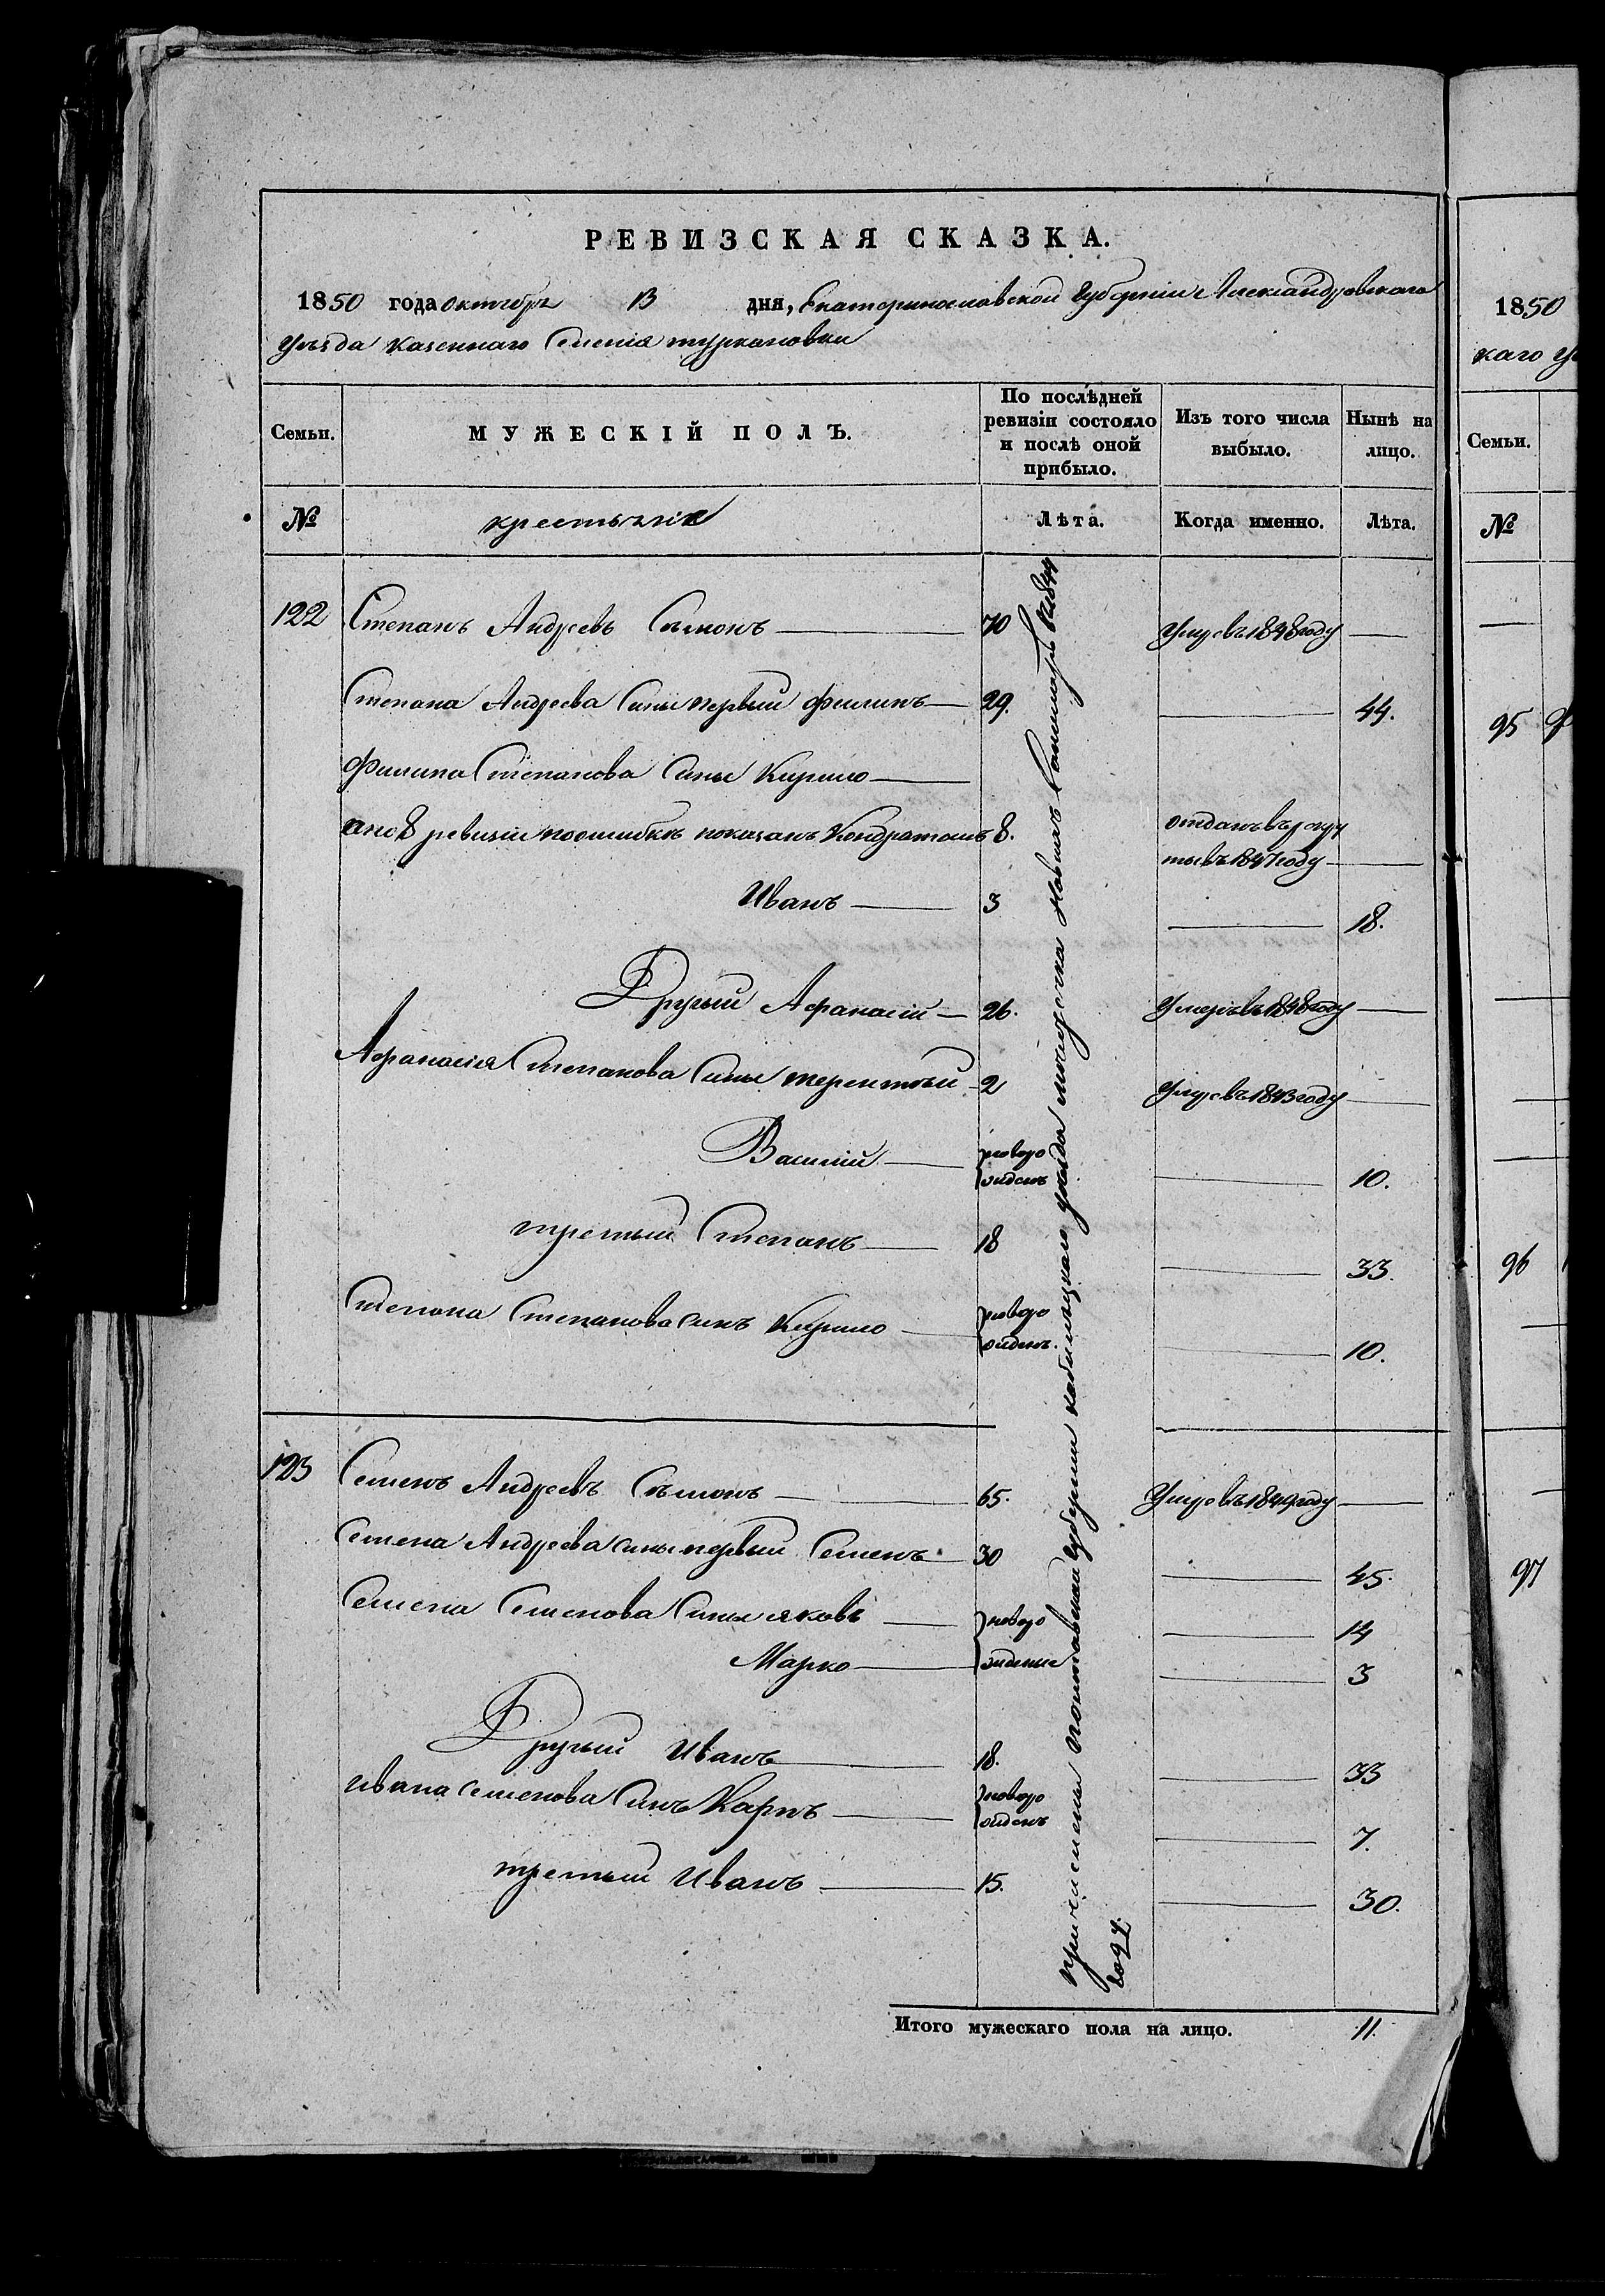 РЕВИЗСКАЯ СКАЗКА.
1850 года октября 13 дня, Екатеринославской Губернии Александровскаго
Уезда Казеннаго Селения туркеновки
Семьи. МУЖЕСКІЙ ПОЛЪ. По послѣдней ревизіи состояло и послѣ оной прибыло. Изъ того числа выбыло. Нынѣ на лицо.
№ крестьяне Лѣта. Когда именно. Лѣта.
122 Степанъ Андреевъ 70 Умре въ 1848 году
Степана Андреева Сины первый Филипъ 29. 44.
Филипа Степанова Сины Кирило
а по 8 ревизии по ошибкѣ показанъ Кондратомъ 8. отданъ въ рекру
ты въ 1847 году
Иванъ 3 18.
Другий Афанасій 26. Умеръ въ 1848 году
Афанасия Степанова Сины терентий 2 Умре въ 1843 году
Василий новоро
жденъ 10.
третий Степанъ 18 33.
Степана Степанова синъ Кирило новоро
жденъ. 10.
123 Семенъ Андреевъ 65. Умре въ 1849 году
Семена Андреева сины первый Семенъ 30 45.
Семена Семенова Сины яковъ новоро 14
Марко жденые 3
Другий Иванъ 18. 33
Ивана Семенова Синъ Карпъ новоро
жденъ 7.
третий Иванъ 15. 30.
причислены полтавской губернии кобиляцкаго уезда местечка Новыхъ Санжаръ въ 1844
году.
Итого мужескаго пола на лицо. 11.
1850
каго
Семьи.
№
95
96
97